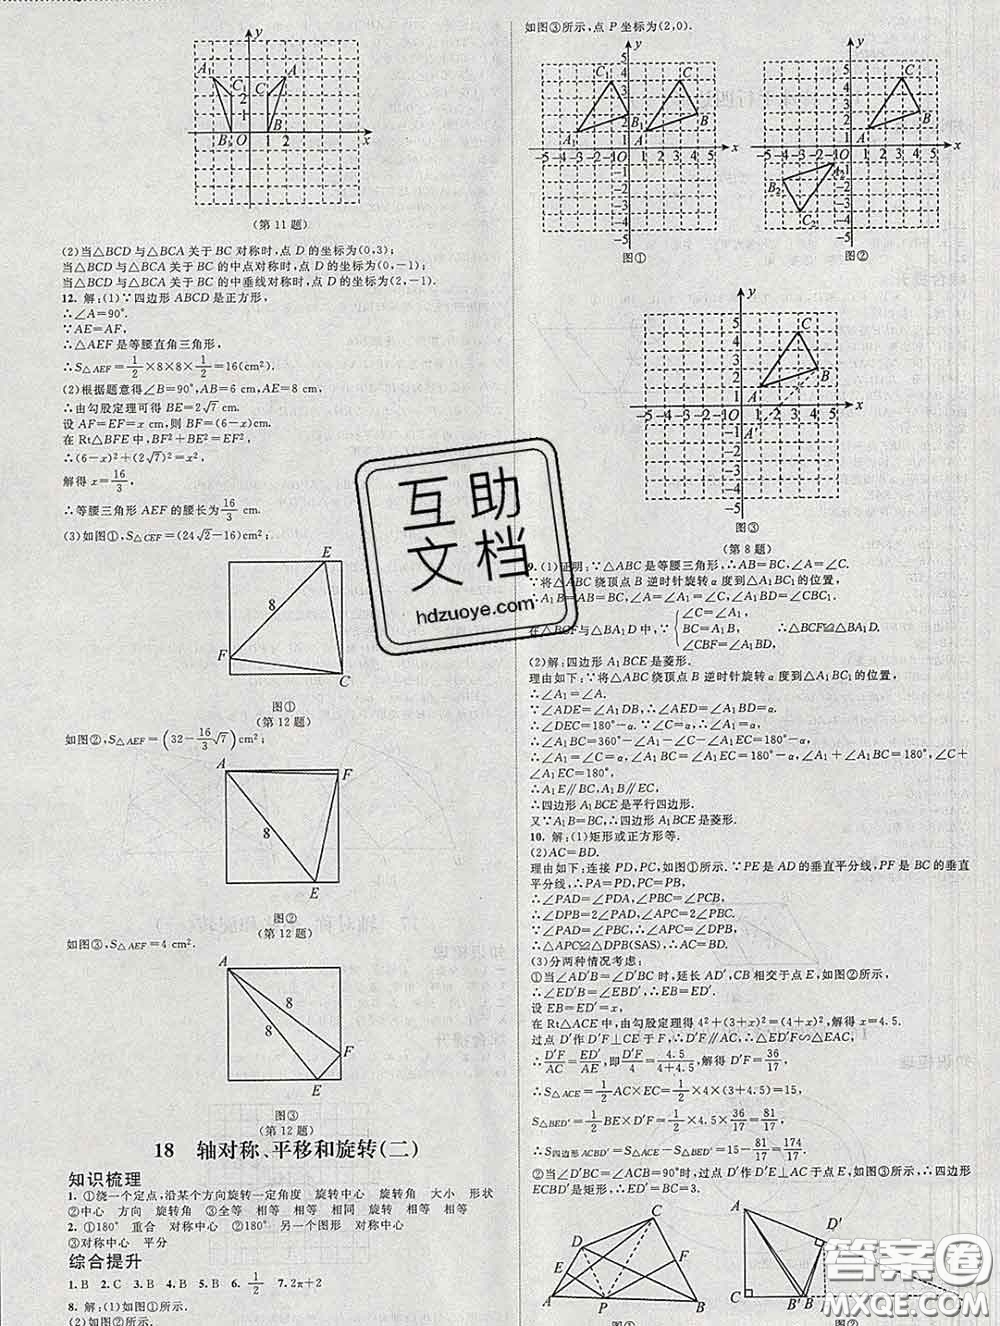 (第11题)
(2)当△BCD与△BCA关于BC对称时,点D的坐标为(0,3);
当△BCD与△BCA关于BC的中点对称时,点D的坐标为(0,-1);
当△BCD与△BCA关于BC的中垂线对称时,点D的坐标为(2,-1).
12. 解:(1)∵四边形ABCD是正方形,
∴∠A=90°.
∵AE=AF,
∴△AEF是等腰直角三角形,
∴S△AEF=1/2×8×8×1/2=16(cm²).
(2)根据题意得∠B=90°,AB=6 cm,AE=8 cm,
∴由勾股定理可得BE=2√7 cm.
设EF=AF=x cm,则BF=(6-x)cm.
在Rt△BFE中,BF²+BE²=EF²,
∴(6-x)²+(2√7)²=x²,
解得x=16/3,
∴等腰三角形AEF的腰长为16/3 cm.
(3)如图①,S△CEF=(24√2-16)cm²;
图①
(第12题)
如图②,S△AEF=(32-16/3√7)cm²;
图②
(第12题)
如图③,S△AEF=4 cm².
图③
(第12题)
18 轴对称、平移和旋转(二)
知识梳理
1. ①绕一个定点,沿某个方向旋转一定角度 旋转中心 旋转角 大小 形状
②中心 方向 旋转角 ③全等 相等 相等 相同 旋转 相等 相等
2. ①180° 重合 对称中心 ②180° 另一个图形 对称中心
③对称中心 平分
综合提升
1. B 2. C 3. B 4. B 5. B 6. 1/2 7. 2π+2
8. 解:(1)如图①所示.
(2)如图②所示.
如图③所示,点P坐标为(2,0).
图①
图②
图③
(第8题)
9. (1)证明:∵△ABC是等腰三角形,∴AB=BC,∠A=∠C.
∵将△ABC绕顶点B逆时针旋转α度到△A₁BC₁的位置,
∴A₁B=AB=BC,∠A=∠A₁=∠C,∠A₁BD=∠CBC₁.
在△BCF与△BA₁D中,∵{∠C=∠A₁, BC=A₁B, ∠CBF=∠A₁BD, ∴△BCF≌△BA₁D.
(2)解:四边形A₁BCE是菱形.
理由如下:∵将△ABC绕顶点B逆时针旋转α度到△A₁BC₁的位置,
∴∠A₁=∠A.
∵∠ADE=∠A₁DB,∴∠AED=∠A₁BD=α.
∴∠DEC=180°-α.∵∠C=α,∴∠A₁=α.
∴∠A₁BC=360°-∠A₁-∠C-∠A₁EC=180°-α.
∴∠A₁=∠C=α,∠A₁BC=∠A₁EC,∴∠A₁+∠A₁BC=180°,∠C+
∠A₁EC=180°,
∴A₁E∥BC,A₁B∥EC.
∴四边形A₁BCE是平行四边形.
又∵A₁B=BC,∴四边形A₁BCE是菱形.
10. 解:(1)矩形或正方形等.
(2)AC=BD.
理由如下:连接PD,PC,如图①所示.∵PE是AD的垂直平分线,PF是BC的垂直
平分线,∴PA=PD,PC=PB,
∴∠PAD=∠PDA,∠PBC=∠PCB,
∴∠DPB=2∠PAD,∠APC=2∠PBC.
∵∠PAD=∠PBC,∴∠APC=∠DPB,
∴△APC≌△DPB(SAS),∴AC=BD.
(3)分两种情况考虑:
①当∠AD′B=∠D′BC时,延长AD′,CB相交于点E,如图②所示,
∴∠ED′B=∠EBD′,∴EB=ED′.
设EB=ED′=x,
在Rt△ACE中,由勾股定理得4²+(3+x)²=(4+x)²,解得x=4.5.
过点D′作D′F⊥CE于F,∴D′F∥AC,∴△ED′F∽△EAC,
∴D′F/AC=ED′/AE,即D′F/4=4.5/(4+4.5),解得D′F=36/17,
∴S△ACE=1/2AC×EC=1/2×4×(3+4.5)=15,
S△BED′=1/2BE×D′F=1/2×4.5×36/17=81/17,
∴S四边形ACBD′=S△ACE-S△BED′=15-81/17=174/17.
②当∠D′BC=∠ACB=90°时,过点D′作D′E⊥AC于点E,如图③所示,∴四边形
ECBD′是矩形,∴ED′=BC=3.
图①
图②
互助
文档
hdzuoye.com
答案圈
MXQE.COM